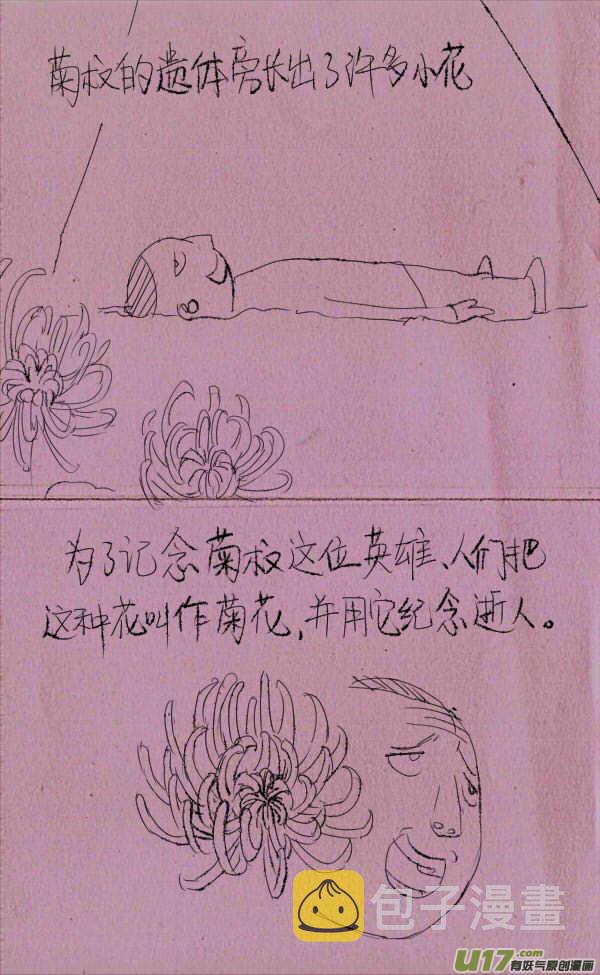 菊叔的遗体旁长出了许多小花
为了记念菊叔这位英雄、人们把
这种花叫作菊花，并用它纪念逝人。
包子漫畫
U17.com
有妖气原创漫画